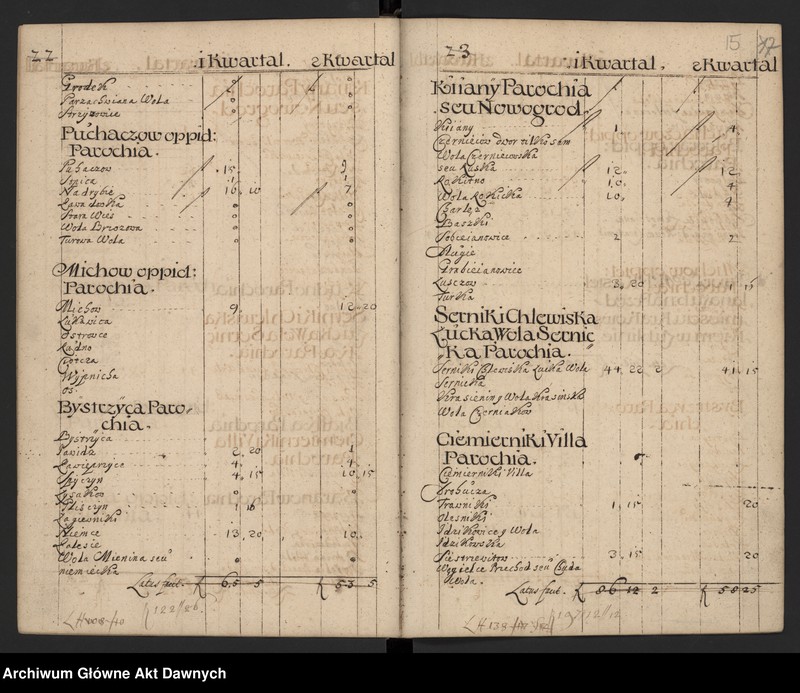 22
1 Kwartal. 2 Kwartal
Grodek o o
Strzyzowie o o
Puchaczow oppid:
Parochia.
Puhaczow 15 9
Jenica 1 1
Nadrybie 16 10 7
Zawadowka o o
Stara Wies o o
Wola Brzozowa o o
Turowa Wola o o
Michow oppid:
Parochia.
Michow 9. 12 20
Lukawica
Ostrowce
Rudno
Wypnicha
Bystrzyca Paro-
chia.
Bystrzyca
Jawidz 2 20 1
Zawieprzyce 4 4
Spyczyn 4 15 10 15
Lysakow o o
Pliszczyn 1 16
Lagiewniki
Niemce 13 20 10
Zalesie
Wola Mienina seu o o
niemiecka
Latus facit. f 65 5 f 53 5
122//26
23 15 37
1 Kwartal. 2 Kwartal
Kiiany Parochia
seu Nowogrod
Kiiany 1 4
Czernieiow dwor tilko sam
Wola Czerniewska
seu Ruska 12 12
Rokitno 10 4
Wola Rokitka 10 4
Charlęz
Baszki
Sobieianowice 2 2
Długie
Grabieianowice
Luszczow 3 20 1 15
Turka
Serniki Chlewiska
Łucka Wola Sernic
Ka Parochia.
Serniki Chlewiska Lucka Wola 44 22 2 41 15
Sernicka
Krasienin y Wola Krasinska
Wola Czerniakow
Ciemierniki Villa
Parochia.
Ciemierniki Villa
Brobucza
Trawniki 1 15 20
Olesniki
Jdzikowice y Wola
Jdzikowska
Siestrzewitow 3 15 20
Wegielce Przechod seu Chyda
Wola.
Latus facit. f 86 12 2 f 58 25
Archiwum Główne Akt Dawnych